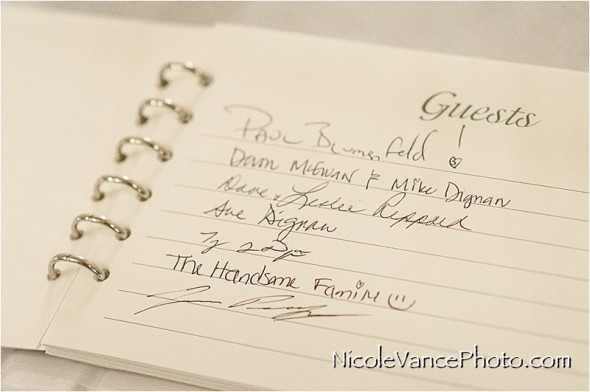 Guests
Paul Blumenfeld!
Devon McEwan & Mike Dignan
Dave & Leslie Reppard
Sue Dignan
The Handsome Family
NicoleVancePhoto.com